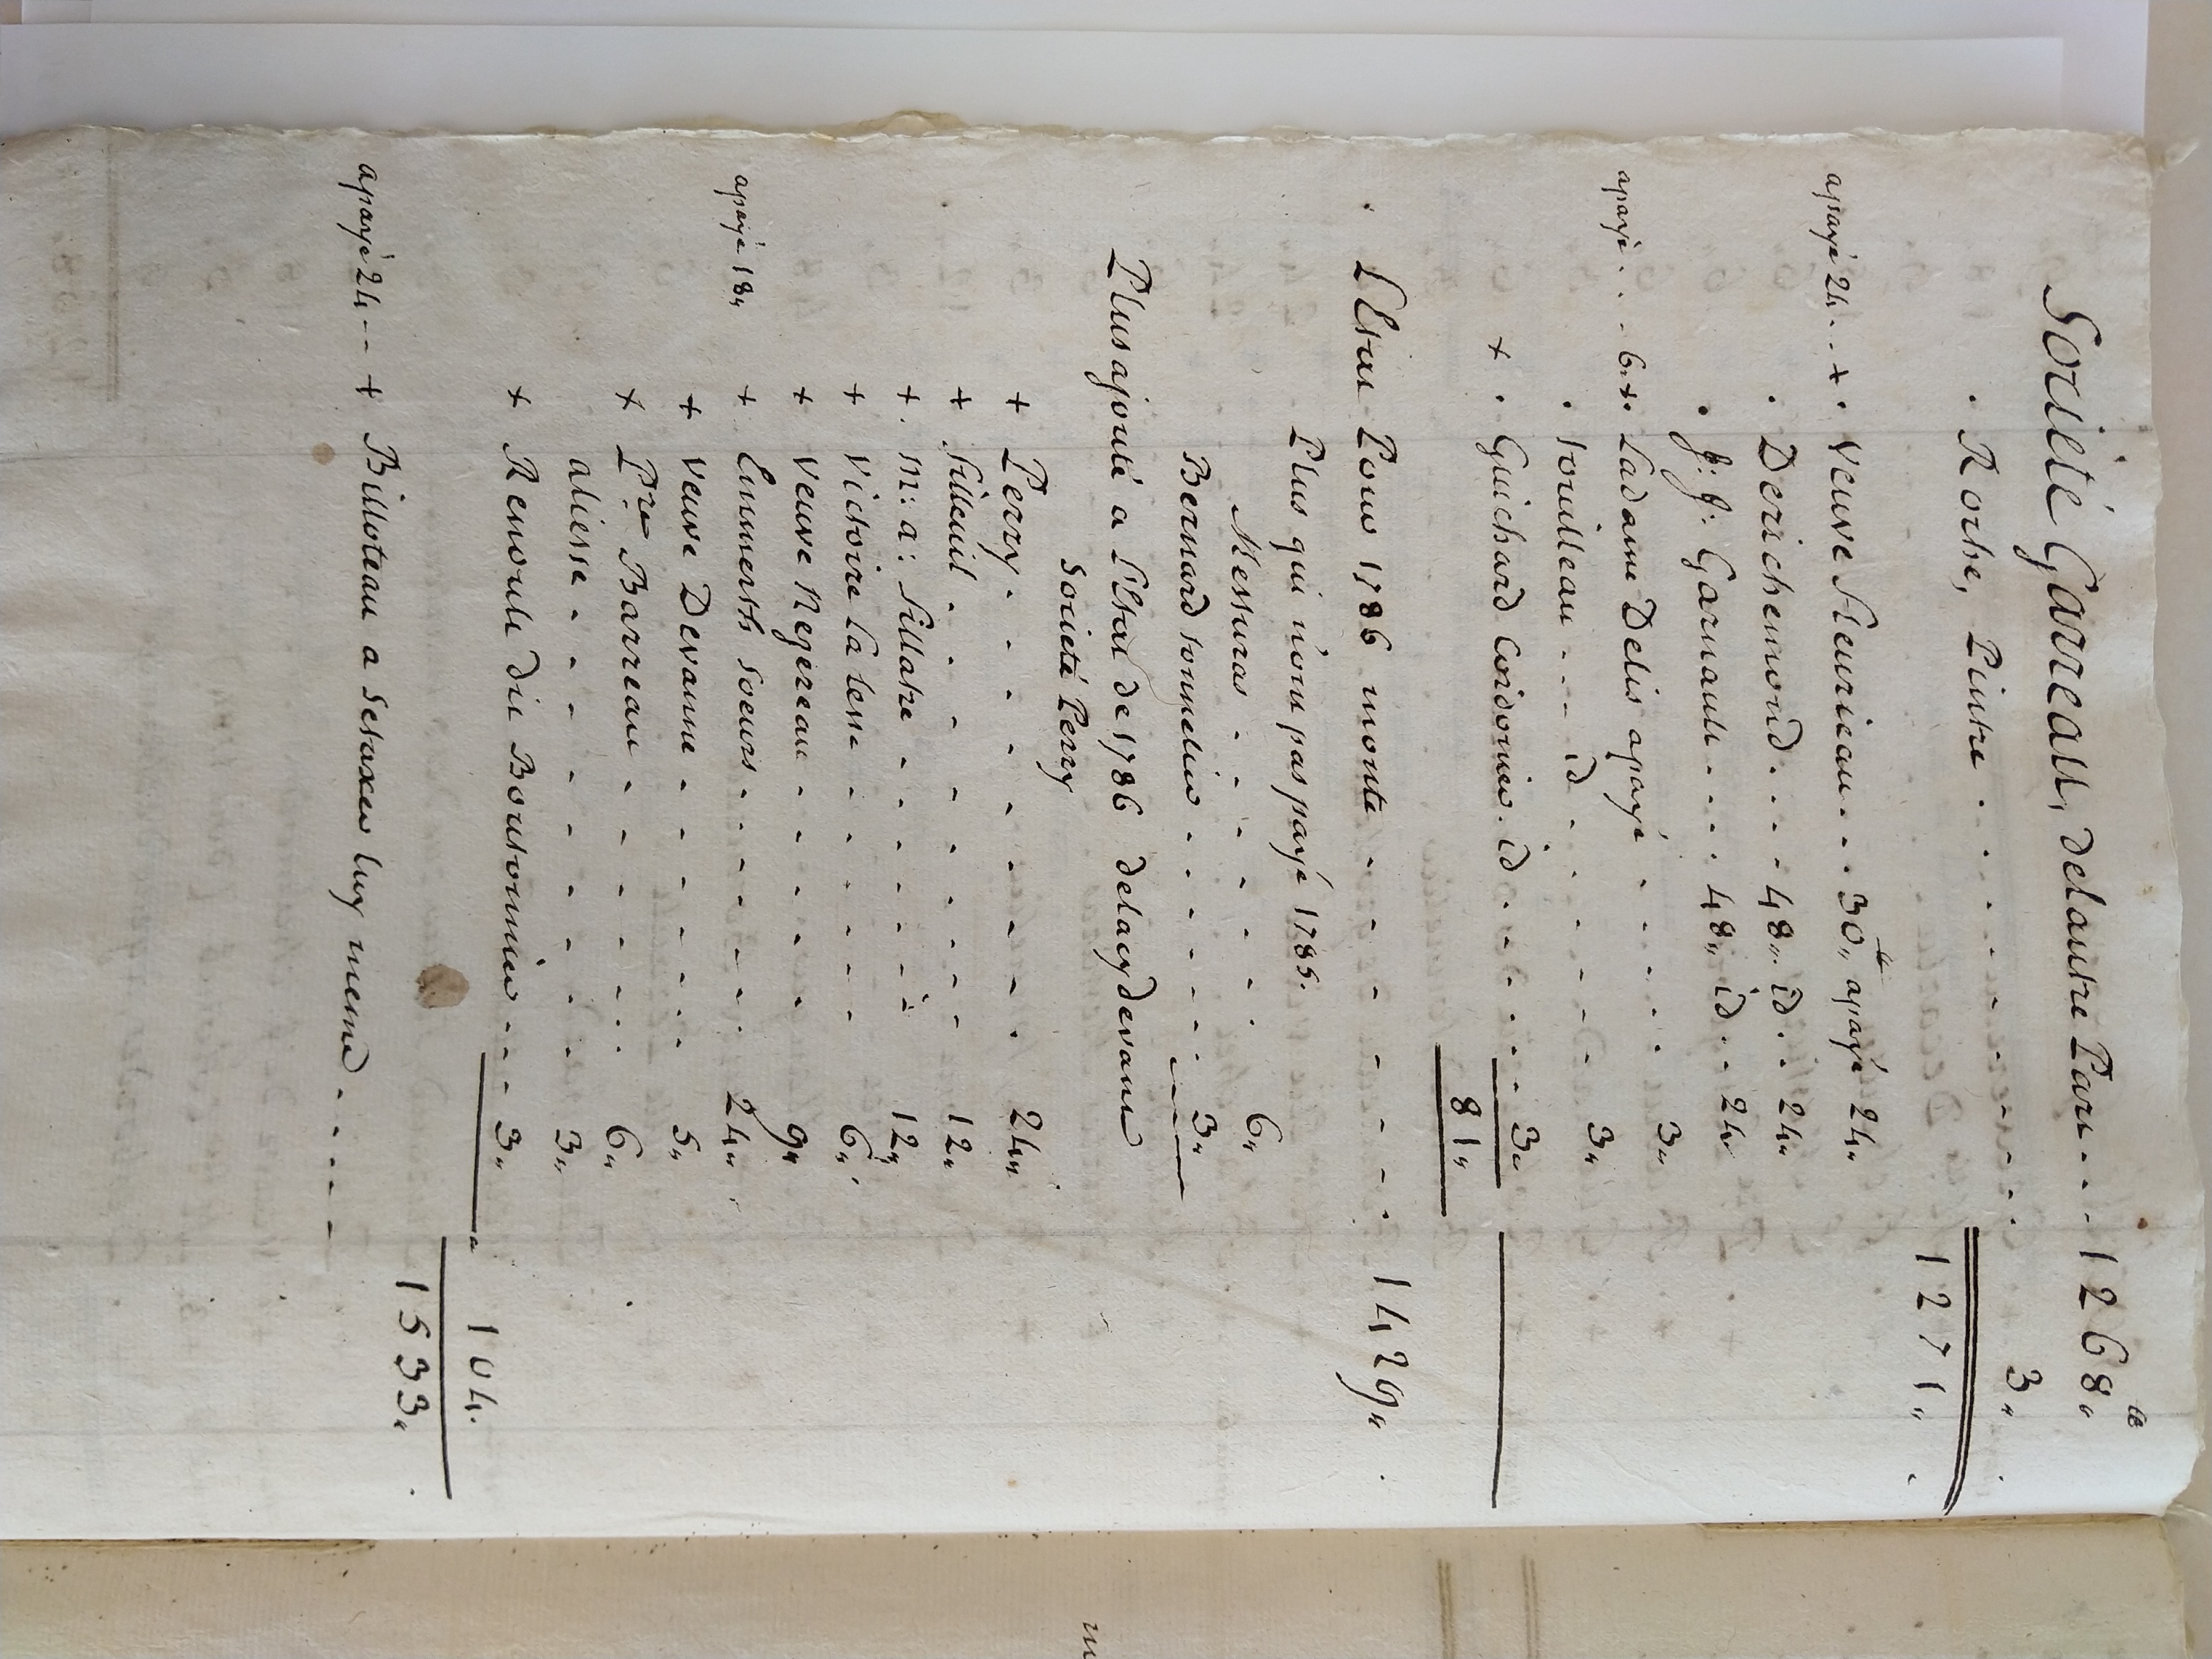 Société Garreau, delautre Part - - - 1268" tt
. Roche, Pintre . . . . . . . . . 3"
1271"
apayé 24 . . + . Veuve fleuriau . . . 30" tt apayé 24"
. Derichemond . . . . 48" . id . . 24"
. J: J: Garnault . . . . 48" . id . . 24"
apayé . . . 6 . + . Ladame Delis apayé . . . . . 3"
. Souilleau . . . id . . . . . . 3"
+ . Guichard Cordonier . id . . . . . . 3"
81"
L'Etat Pour 1786 monte . . . . . . . 1429"
Plus qui n'ont pas payé 1785.
Messuras . . . . . . . 6"
Bernard tonnelier . . . . . . 3"
Plus ajouté a l'Etat de 1786 delacydevant
Societé Perry
+ Perry . . . . . . . . . 24"
+ filleuil . . . . . . . . 12"
+ . M: a: fillatre . . . . . . 12"
+ Victoire La tesse . . . . . . 6"
+ Veuve Negereau . . . . . . 9"
apayé 18" + Emmerth Soeurs . . . . . . 24"
+ Veuve Devanne . . . . . . 5"
+ Pre Barreau . . . . . . 6"
aliesse . . . . . . . . . 3"
+ Renoule dit Boutonnier . . . . 3"
104.
1533"
apayé 24 - - + Billoteau a Setaxer luy meme - - - - -